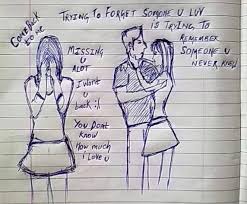 COME BACK
TO ME
TRYING TO FORGET SOMEONE U LUV
IS TRYING TO
REMEMBER
SOMEONE U
NEVER KNEW
MISSING
U
ALOT
I WANT
U
BACK :(
YOU DONT
KNOW
HOW MUCH
I LOVE U